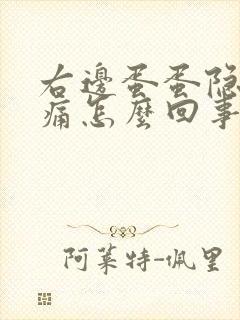 右邊蛋蛋隐
痛怎麼回事
阿莱特-佩里